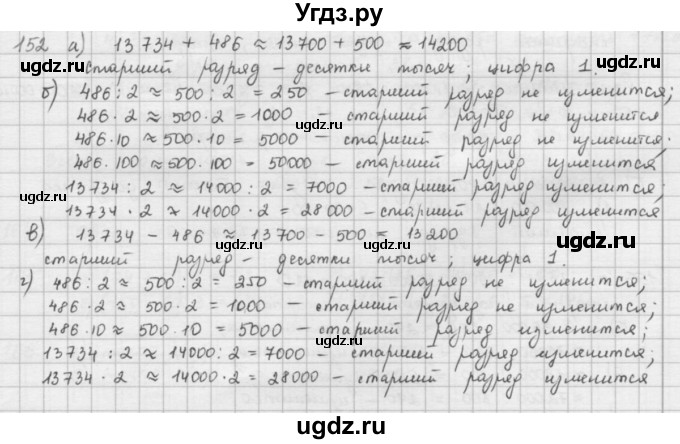 Угдз.ру
152 а) 13 734 + 486 ≈ 13 700 + 500 ≈ 14200
старший разряд – десятки тысяч; цифра 1.
б) 486 : 2 ≈ 500 : 2 = 250 – старший разряд не изменится;
486 · 2 ≈ 500 · 2 = 1000 – старший разряд не изменится
486 · 10 ≈ 500 · 10 = 5000 – старший разряд не изменится;
486 · 100 ≈ 500 · 100 = 50000 – старший разряд изменится,
13 734 : 2 ≈ 14000 : 2 = 7000 – старший разряд изменится;
13 734 · 2 ≈ 14000 · 2 = 28 000 – старший разряд изменится
в) 13 734 – 486 ≈ 13 700 – 500 = 13 200
старший разряд – десятки тысяч; цифра 1.
г) 486 : 2 ≈ 500 : 2 = 250 – старший разряд не изменится;
486 · 2 ≈ 500 · 2 = 1000 – старший разряд не изменится;
486 · 10 ≈ 500 · 10 = 5000 – старший разряд изменится;
13734 : 2 ≈ 14000 : 2 = 7000 – старший разряд изменится;
13 734 · 2 ≈ 14000 · 2 = 28000 – старший разряд изменится
ugdz.ru
ugdz.ru
ugdz.ru
ugdz.ru
ugdz.ru
ugdz.ru
ugdz.ru
ugdz.ru
ugdz.ru
ugdz.ru
ugdz.ru
Угдз.ру